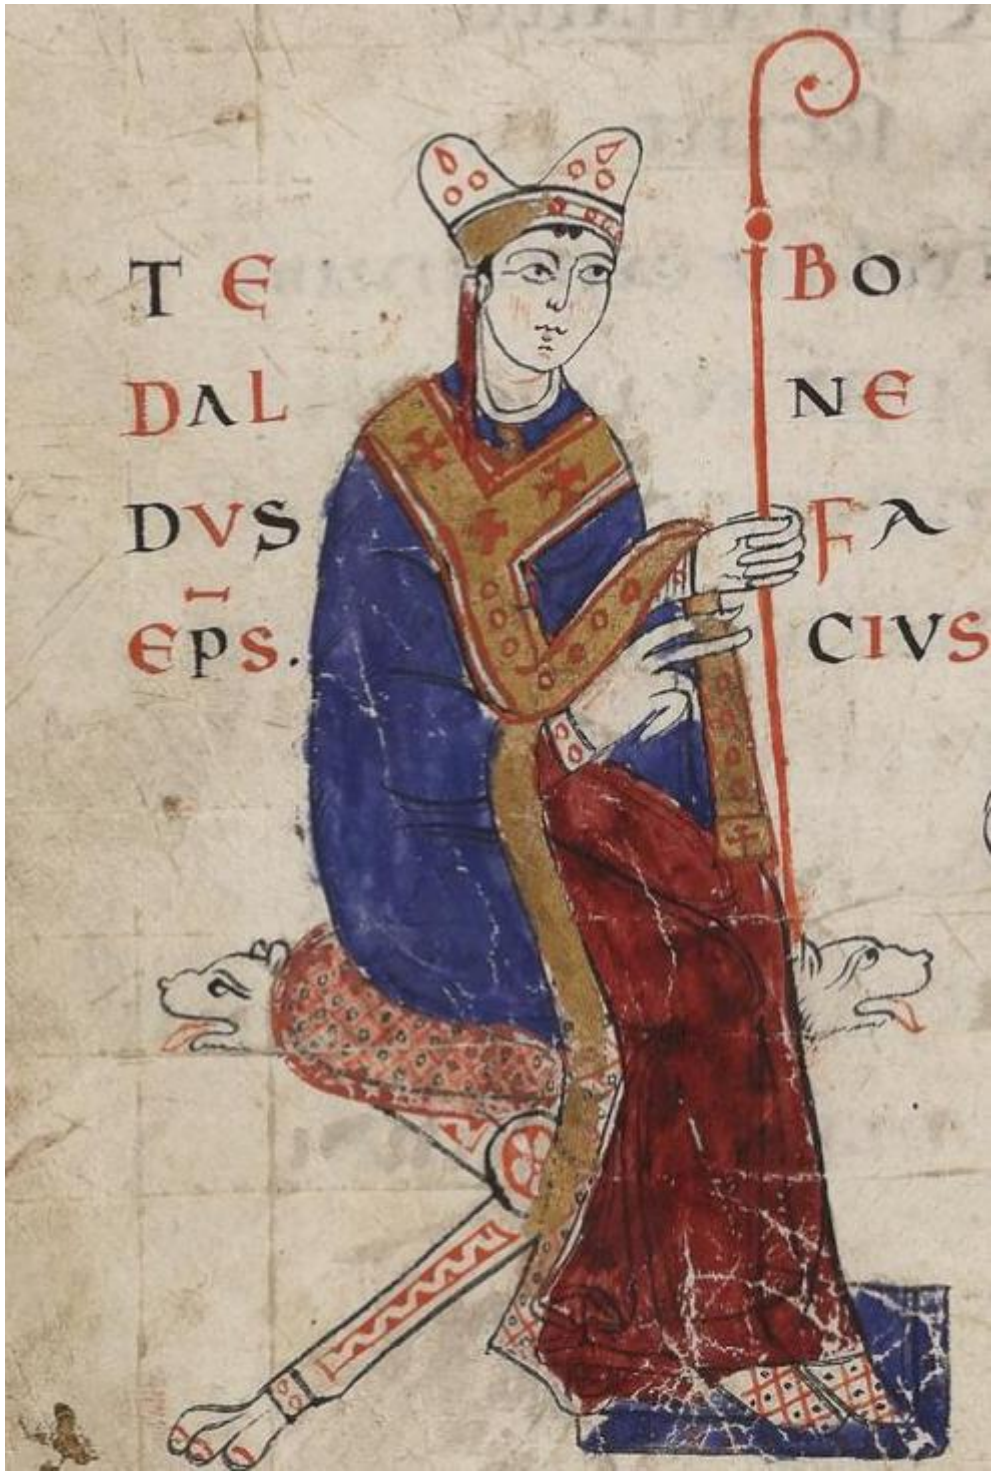 TE
DAL
DVS
EPS.
BO
NE
FA
CIVS